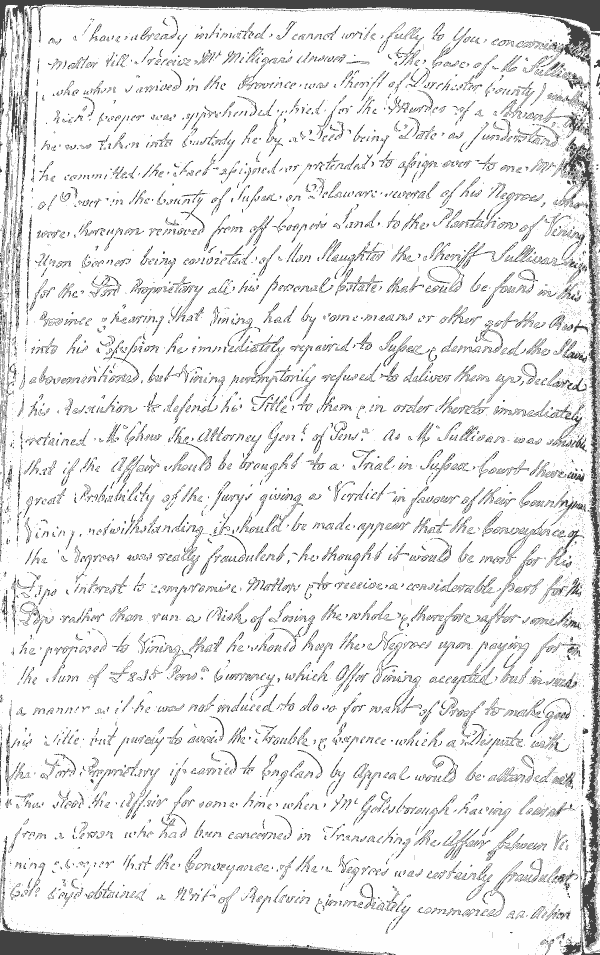 as I have already intimated I cannot write fully to You concerning
Mattor till I receive Mr Milligan's Answer — The Case of Mr Sullivan
who when I arrived in the Province was Sheriff of Dorchester County) was
Richd Cooper was apprehended & tried for the Murder of a Servant
he was taken into Custody he by a Deed being Date as I understand
he committed the Fact assigned or pretended to assign over to one Mr
of Dover in the County of Sussex on Delaware several of his Negroes, who
were thereupon removed from off Coopers Land to the Plantation of Vining
Upon Coopers being convicted of Man Slaughter the Sheriff Sullivan
for the Lord Proprietary all his personal Estate that could be found in this
Province & hearing that Vining had by some means or other got the Rest
into his Possession he immediately repaired to Sussex & demanded the Slaves
abovementioned, but Vining peremptorily refused to deliver them up, declared
his Resolution to defend his Title to them & in order thereto immediately
retained Mr Chew the Attorney Genl of Pensa As Mr Sullivan was sensible
that if the Affair should be brought to a Trial in Sussex Court there was
great Probability of the Jurys giving a Verdict in favour of their Countryman
Vining, notwithstanding it should be made appear that the Conveyance of
the Negroes was really fraudulent, he thought it would be most for His
Ldps Interest to compromise Mattors & to receive a considerable part for the
Ldp rather than run a Risk of Losing the whole & therefore after some time
he proposed to Vining that he should keep the Negroes upon paying for em
the Sum of £ Pensa Currency, which Offer Vining accepted but in such
a manner as if he was not induced to do so for want of Proof to make good
his Title but purely to avoid the Trouble & Expence which a Dispute with
the Lord Proprietary if carried to England by Appeal would be attended with
Thus stood the Affair for some time when Mr Goldsborough having learnt
from a Person who had been concerned in Transacting the Affair between Vi
ning & Cooper that the Conveyance of the Negroes was certainly fraudulent
Cole Lloyd obtained a Writ of Replevin & immediately commenced an Action
agt